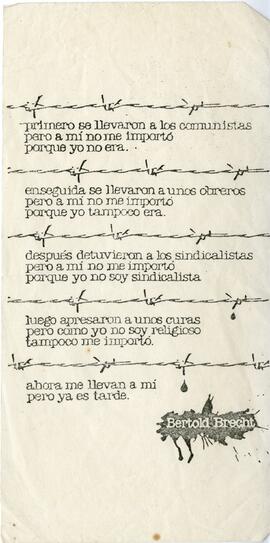 primero se llevaron a los comunistas
pero a mí no me importó
porque yo no era.
enseguida se llevaron a unos obreros
pero a mí no me importó
porque yo tampoco era.
después detuvieron a los sindicalistas
pero a mi no me importó
porque yo no soy sindicalista
luego apresaron a unos curas
pero como yo no soy religioso
tampoco me importó.
ahora me llevan a mí
pero ya es tarde.
Bertold Brecht